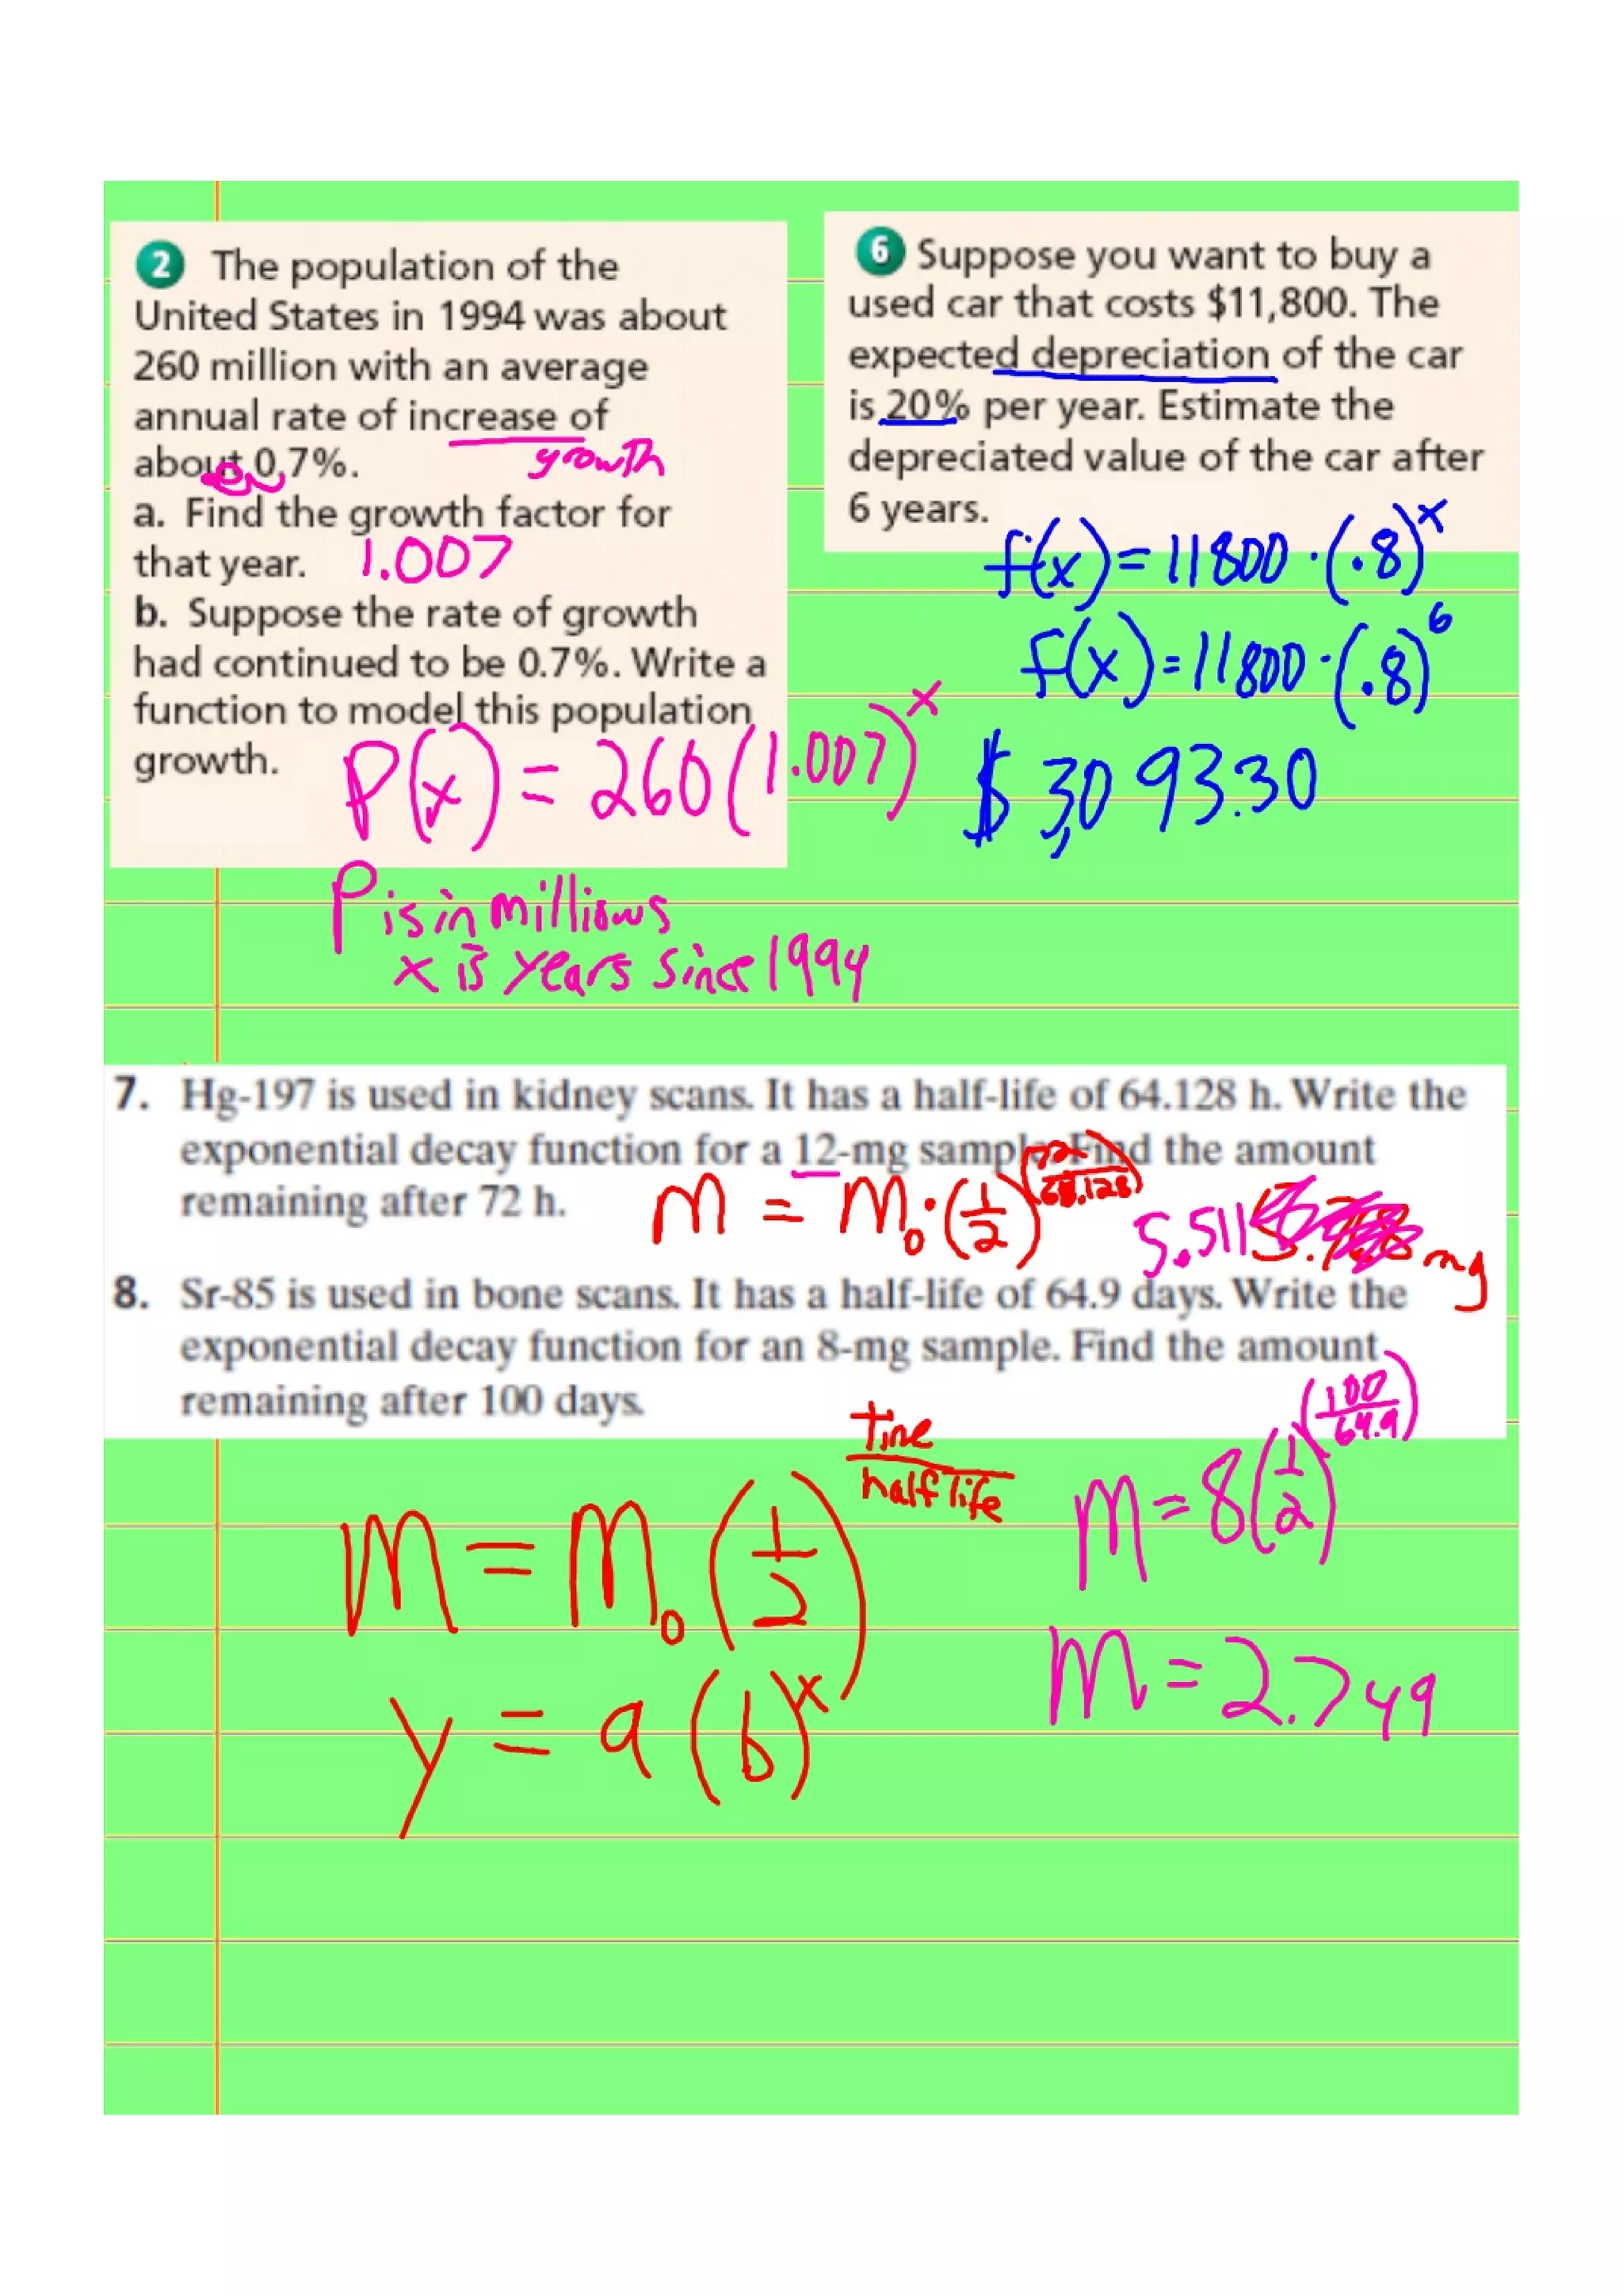 2 The population of the
United States in 1994 was about
260 million with an average
annual rate of increase of
about 0.7%.
growth
a. Find the growth factor for
that year. 1.007
b. Suppose the rate of growth
had continued to be 0.7%. Write a
function to model this population
growth.
P(x) = 260(1.007)^x
P is in millions
x is years since 1994
6 Suppose you want to buy a
used car that costs $11,800. The
expected depreciation of the car
is 20% per year. Estimate the
depreciated value of the car after
6 years.
f(x) = 11800 · (.8)^x
f(x) = 11800 · (.8)^6
$ 3,093.30
7. Hg-197 is used in kidney scans. It has a half-life of 64.128 h. Write the
exponential decay function for a 12-mg sample. Find the amount
remaining after 72 h.
m = m₀ · (1/2)^(72/64.128)
5.511 mg
8. Sr-85 is used in bone scans. It has a half-life of 64.9 days. Write the
exponential decay function for an 8-mg sample. Find the amount
remaining after 100 days.
m = m₀ (1/2)^(time/half life)
y = a (b)^x
m = 8(1/2)^(100/64.9)
m = 2.749